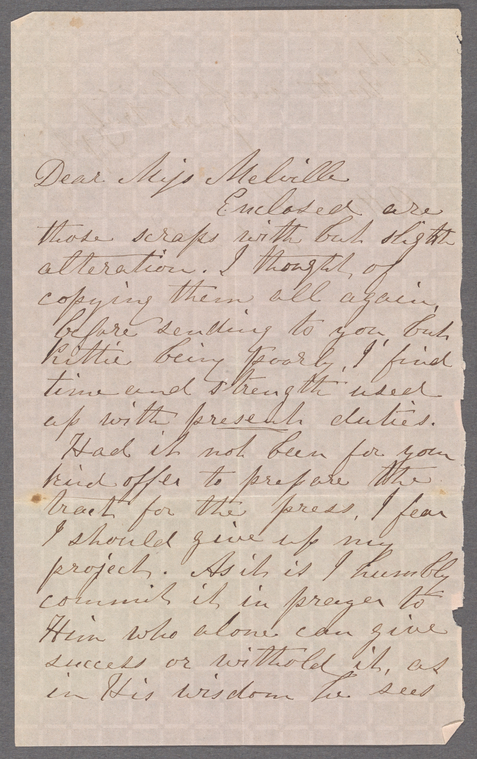 Dear Miss Melville
Enclosed are
those scraps with but slight
alteration. I thought of
copying them all again,
before sending to you but
Kittie being poorly, I find
time and strength used
up with present duties.
Had it not been for your
kind offer to prepare the
tract for the press, I fear
I should give up my
project. As it is I humbly
commit it in prayer to
Him who alone can give
success or withold it, as
in His wisdom he sees